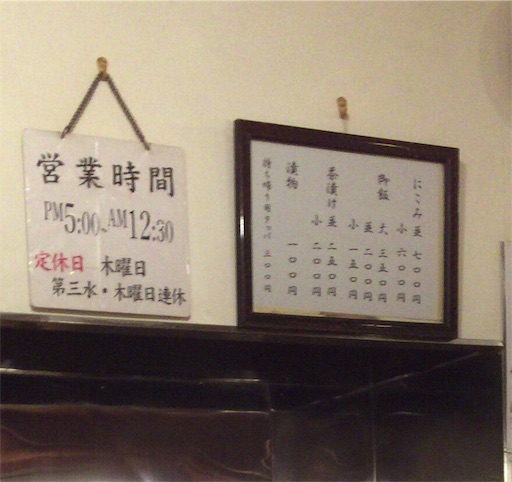 営業時間
PM5:00~AM12:30
定休日 木曜日
第三水・木曜日連休
にこみ 並 七〇〇円
小 六〇〇円
御飯 大 三五〇円
並 二〇〇円
小 一五〇円
茶漬け 並 二五〇円
小 二〇〇円
漬物 一〇〇円
持ち帰り用タッパ 三〇〇円